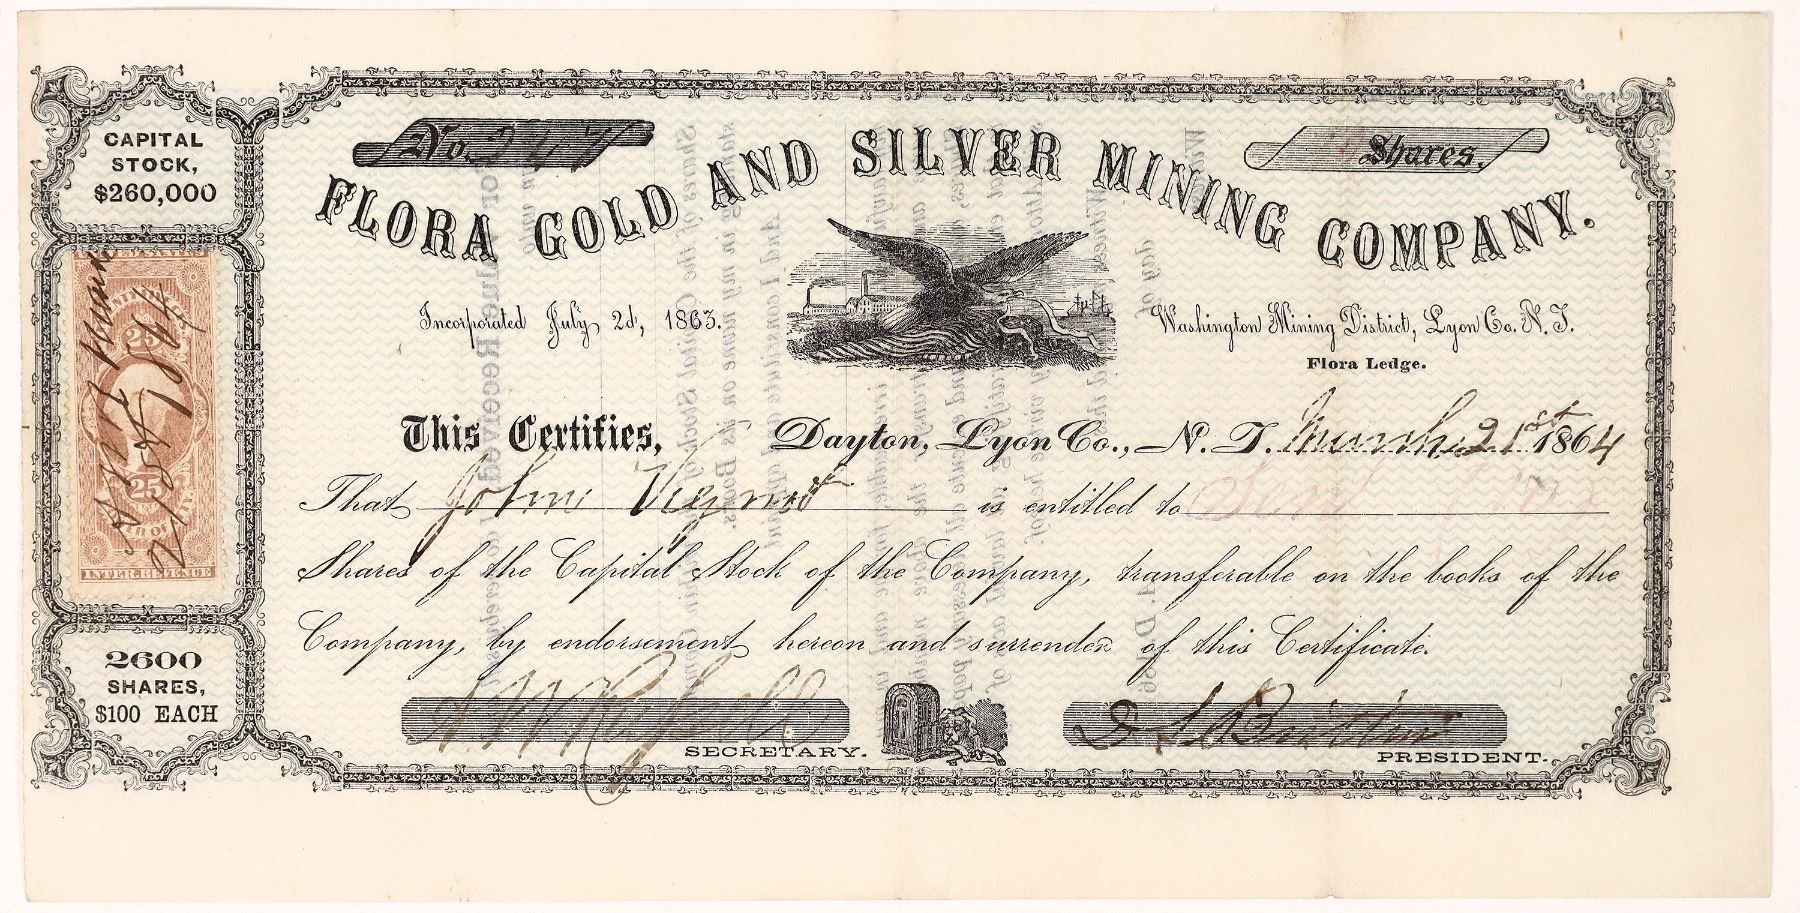 CAPITAL
STOCK,
$260,000
No.
Shares.
FLORA GOLD AND SILVER MINING COMPANY.
Incorporated July 2d, 1863.
Washington Mining District, Lyon Co. N. T.
Flora Ledge.
This Certifies,
Dayton, Lyon Co., N. T. March 21st 1864
That John is entitled to
Shares of the Capital Stock of the Company, transferable on the books of the
Company, by endorsement hereon and surrender of this Certificate.
SECRETARY.
PRESIDENT.
25
25
INTER. REVENUE
2600
SHARES,
$100 EACH